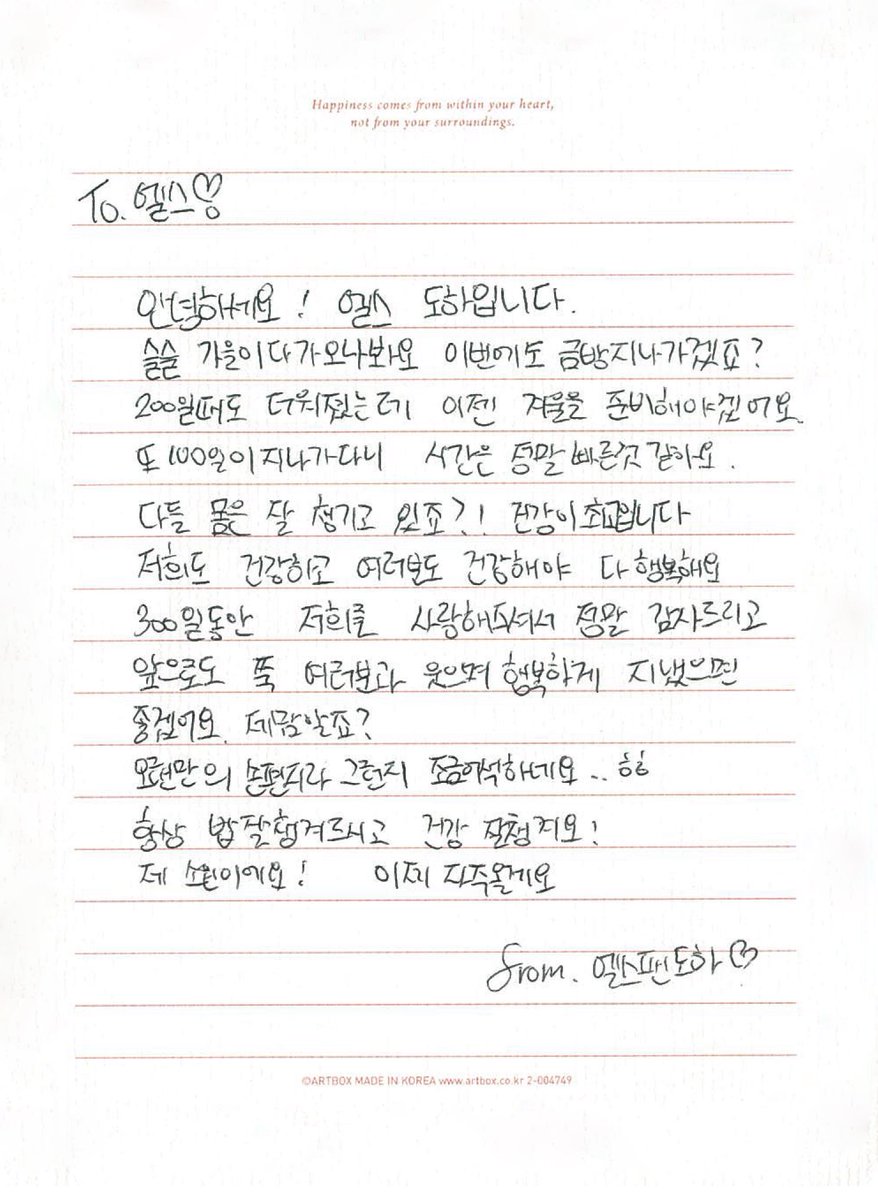 Happiness comes from within your heart,
not from your surroundings.
To. 엘스♡
안녕하세요! 엘스 도하입니다.
슬슬 가을이 다가오나봐요 이번에도 금방지나가겠죠?
200일때도 더워졌는데 이젠 겨울을 준비해야겠어요
또 100일이 지나가다니 시간은 정말 빠른것 같아요.
다들 몸은 잘 챙기고 있죠?! 건강이 최고입니다
저희도 건강하고 여러분도 건강해야 다 행복해요
300일동안 저희를 사랑해주셔서 정말 감사드리고
앞으로도 쭉 여러분과 웃으며 행복하게 지냈으면
좋겠어요. 제맘알죠?
오랜만의 손편지라 그런지 조금어색하네요.. 힝
항상 밥 잘챙겨드시고 건강 잘챙겨요!
제 소원이에요! 이제 자주올게요
from. 엘스팬도하♡
©ARTBOX MADE IN KOREA www.artbox.co.kr 2-004749